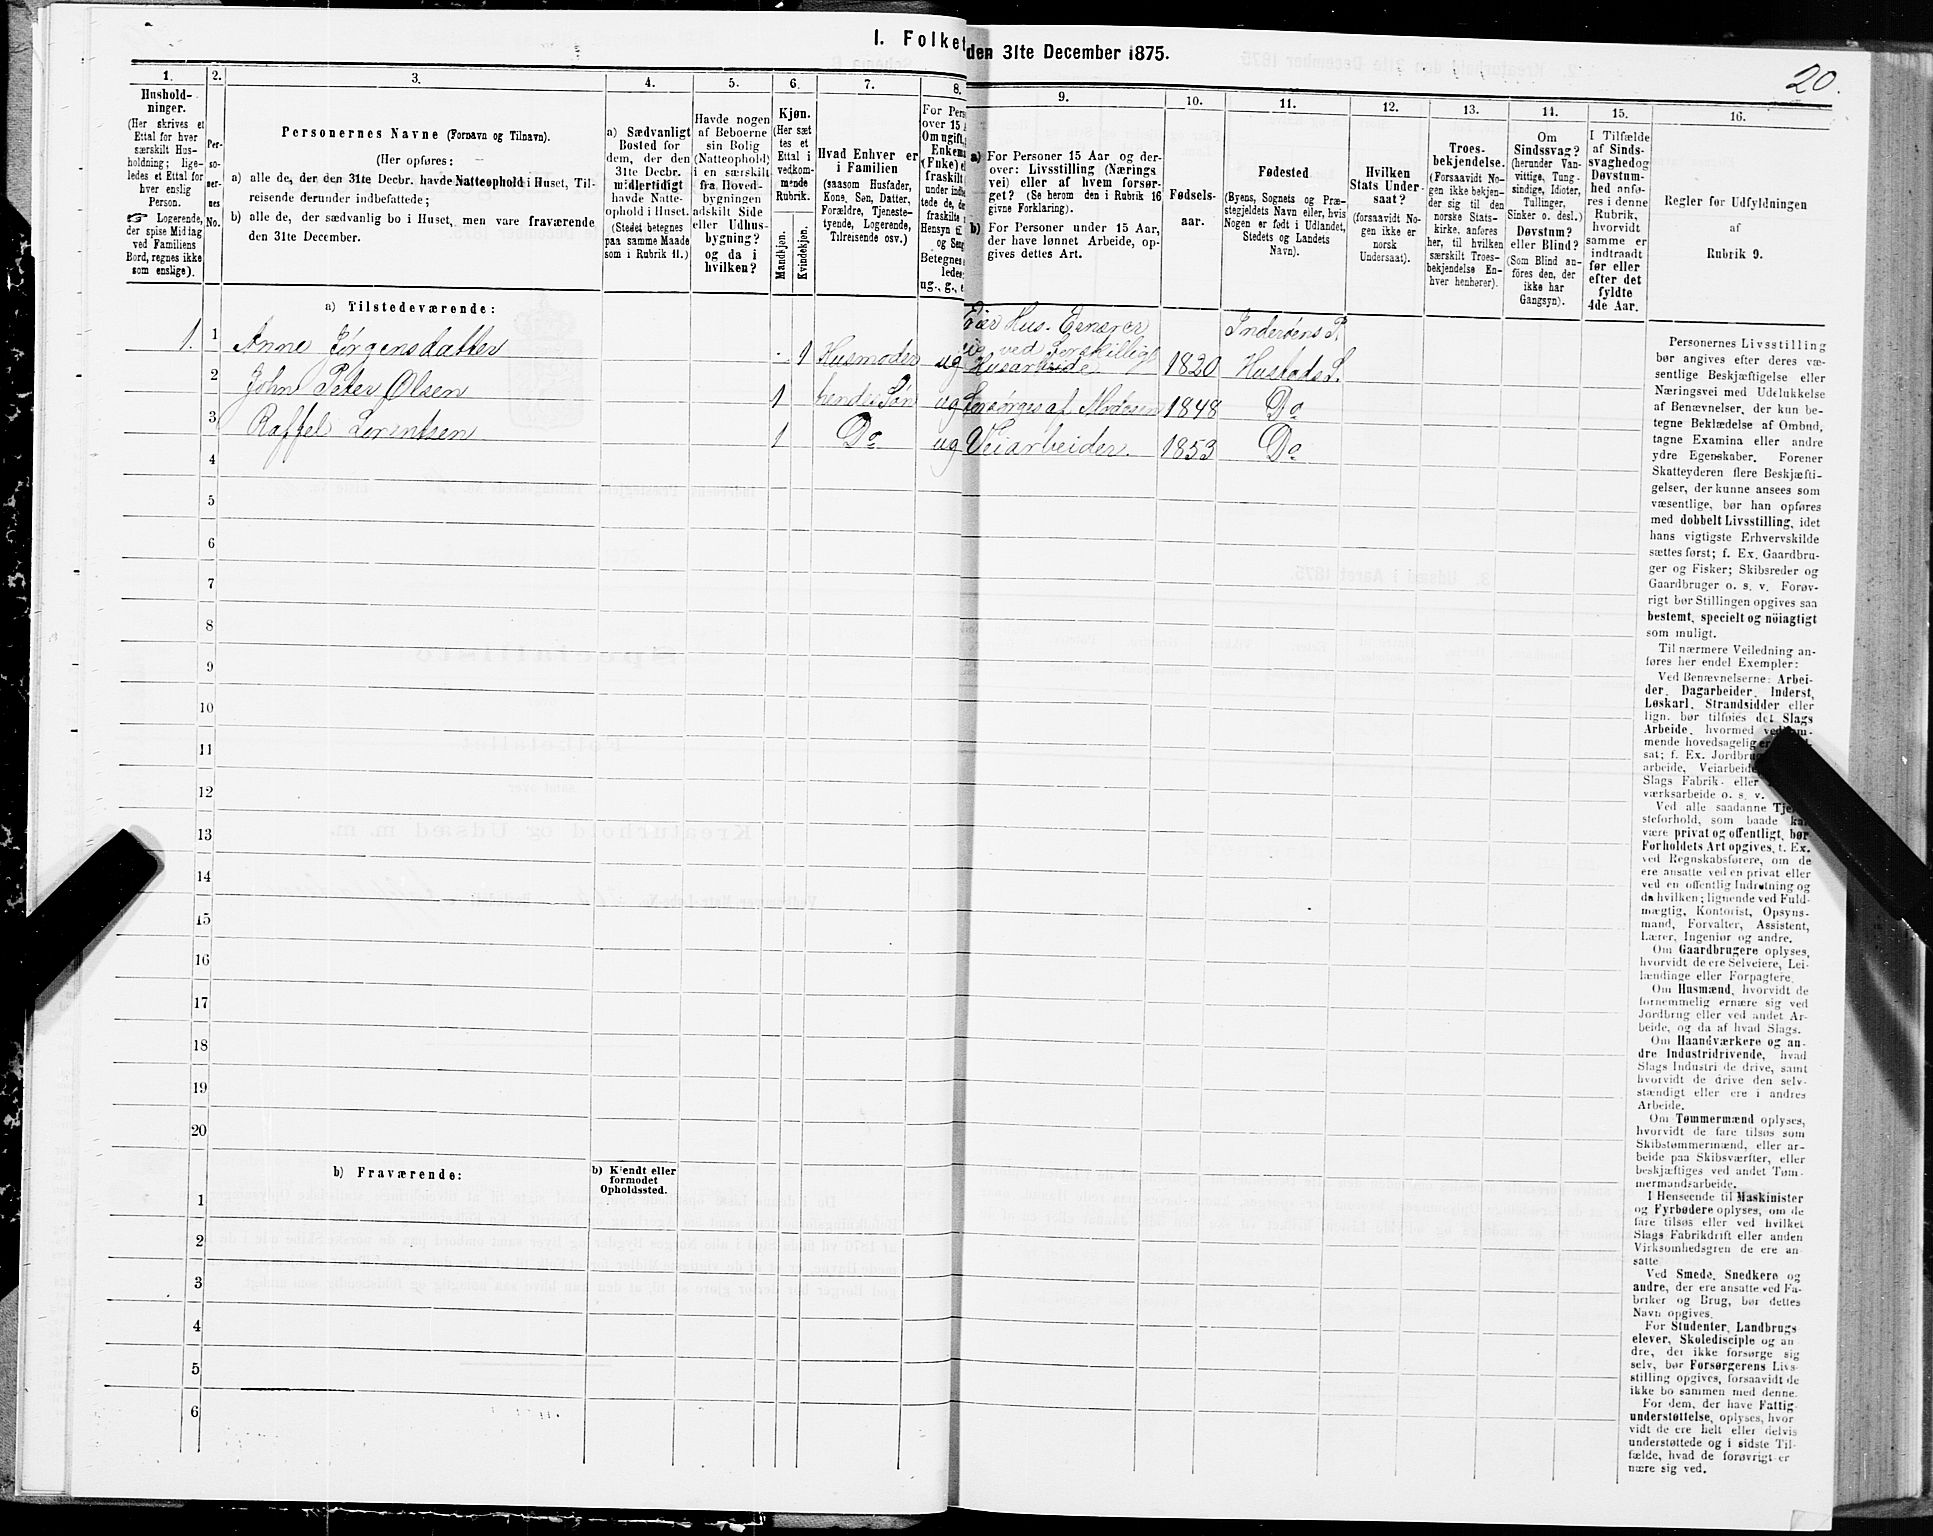 I. Folket
den 31te December 1875.
20.
1.
Hushold-
ninger.
(Her skrives et
Ettal for hver
særskilt Hus-
holdning; lige-
ledes et Ettal for
hver enslig
Person.
☞ Logerende,
der spise Middag
ved Familiens
Bord, regnes ikke
som enslige).
2.
Per-
so-
ner-
nes
No.
3.
Personernes Navne (Fornavn og Tilnavn).
(Her opføres:
a) alle de, der den 31te Decbr. havde Natteophold i Huset, Til-
reisende derunder indbefattede;
b) alle de, der sædvanlig bo i Huset, men vare fraværende
den 31te December.
4.
a) Sædvanligt
Bosted for
dem, der den
31te Decbr.
midlertidigt
havde Natte-
ophold i Huset.
(Stedet betegnes
paa samme Maade
som i Rubrik 11.)
5.
Havde nogen
af Beboerne
sin Bolig
(Natteophold)
i en særskilt
fra Hoved-
bygningen
adskilt Side
eller Udhus-
bygning?
og da i
hvilken?
6.
Kjøn.
(Her sæt
tes et
Ettal i
vedkom-
mende
Rubrik.
Mandkjøn.
Kvindekjøn.
7.
Hvad Enhver er
i Familien
(saasom Husfader,
Kone, Søn, Datter,
Forældre, Tjeneste-
tyende, Logerende,
Tilreisende osv.)
8.
For Pers
over 15 A
Om ugift,
Enkema
(Enke) e
fraskilt
under indbe
tede de, de
fraskilte
Hensyn til
og Seng
Betegnes
ledes:
ug., g., e
9.
a) For Personer 15 Aar og der-
over: Livsstilling (Nærings
vei) eller af hvem forsør-
get? (Se herom den i Rubrik 16
givne Forklaring).
b) For Personer under 15 Aar,
der have lønnet Arbeide, op-
gives dettes Art.
10.
Fødsels-
aar.
11.
Fødested
(Byens, Sognets og Præ-
stegjeldets Navn eller, hvis
Nogen er født i Udlandet,
Stedets og Landets
Navn).
12.
Hvilken
Stats Under-
saat?
(forsaavidt No-
gen ikke er
norsk
Undersaat).
13.
Troes-
bekjendelse.
(Forsaavidt No-
gen ikke bekjen-
der sig til den
norske Stats-
kirke, anføres
her, til hvilken
særskilt Troes-
bekjendelse En-
hver henhører).
14.
Om
Sindssvag?
(herunder Van-
vittige, Tung-
sindige, Idioter,
Tullinger,
Sinker o. desl.)
Døvstum?
eller Blind?
(Som Blind an-
føres den, der
ikke har
Gangsyn).
15.
I Tilfælde
af Sinds-
svaghed og
Døvstum-
hed anfø-
res i denne
Rubrik,
hvorvidt
samme er
indtraadt
før eller
efter det
fyldte
4de Aar.
16.
Regler for Udfyldningen
af
Rubrik 9.
a) Tilstedeværende:
1. 1 Anne Jørgensdatter 1 Husmoder ug Eier Hus. Ernærer
sig ved forskilligt
Husarbeide 1820 Inderøens P.
Hustads S.
2 John Peter Olsen 1 hendes Søn ug Forsørges af Moderen 1848 Do
3 Raffel Lorentsen 1 Do ug Veiarbeider. 1853 Do
4
5
6
7
8
9
10
11
12
13
14
15
16
17
18
19
20
b) Fraværende:
b) Kjendt eller
formodet
Opholdssted.
1
2
3
4
5
6
Personernes Livsstilling
bør angives efter deres væ-
sentlige Beskjæftigelse eller
Næringsvei med Udelukkelse
af Benævnelser, der kun be-
tegne Beklædelse af Ombud,
tagne Examina eller andre
ydre Egenskaber. Forener
Skatteyderen flere Beskjæfti-
gelser, der kunne ansees som
væsentlige, bør han opføres
med dobbelt Livsstilling, idet
hans vigtigste Erhvervskilde
sættes først; f. Ex. Gaardbru-
ger og Fisker; Skibsreder og
Gaardbruger o. s. v. Forøv-
rigt bør Stillingen opgives saa
bestemt, specielt og nöiagtigt
som muligt.
Til nærmere Veiledning an-
føres her endel Exempler:
Ved Benævnelserne: Arbei-
der, Dagarbeider, Inderst,
Løskarl, Strandsidder eller
lign. bør tilføies det Slags
Arbeide, hvormed vedkom-
mende hovedsagelig er
sat; f. Ex. Jordbru
arbeide, Veiarbeide
Slags Fabrik- eller
værksarbeide o. s. v.
Ved alle saadanne Tje
steforhold, som baade kan
være privat og offentligt, bør
Forholdets Art opgives, f. Ex.
ved Regnskabsførere, om de
ere ansatte ved en privat eller
ved en offentlig Indretning og
da hvilken; lignende ved Fuld-
mægtig, Kontorist, Opsyns-
mand, Forvalter, Assistent,
Lærer, Ingeniør og andre.
Om Gaardbrugere oplyses,
hvorvidt de ere Selveiere, Lei-
lændinge eller Forpagtere.
Om Husmænd, hvorvidt de
fornemmelig ernære sig ved
Jordbrug eller ved andet Ar-
beide, og da af hvad Slags.
Om Haandværkere og an-
dre Industridrivende, hvad
Slags Industri de drive, samt
hvorvidt de drive den selv-
stændigt eller ere i andres
Arbeide.
Om Tømmermænd oplyses,
hvorvidt de fare tilsøs som
Skibstømmermænd, eller ar-
beide paa Skibsværfter, eller
beskjæftiges ved andet Tøm-
mermandsarbeide.
I Henseende til Maskinister
og Fyrbødere oplyses, om de
fare tilsøs eller ved hvilket
Slags Fabrikdrift eller anden
Virksomhedsgren de ere an-
satte
Ved Smede, Snedkere og
andre, der ere ansatte ved Fa-
briker og Brug, bør dettes
Navn opgives.
For Studenter, Landbrugs
elever, Skoledisciple og an
dre, der ikke forsørge sig
selv, bør Forsørgerens Livs-
stilling opgives, forsaavidt de
ikke bo sammen med denne.
For dem, der have Fattig-
understøttelse, oplyses, hvor
vidt de ere helt eller delvis
understøttede og i sidste Til-
fælde, hvad de forøvrigt er
nære sig ved.